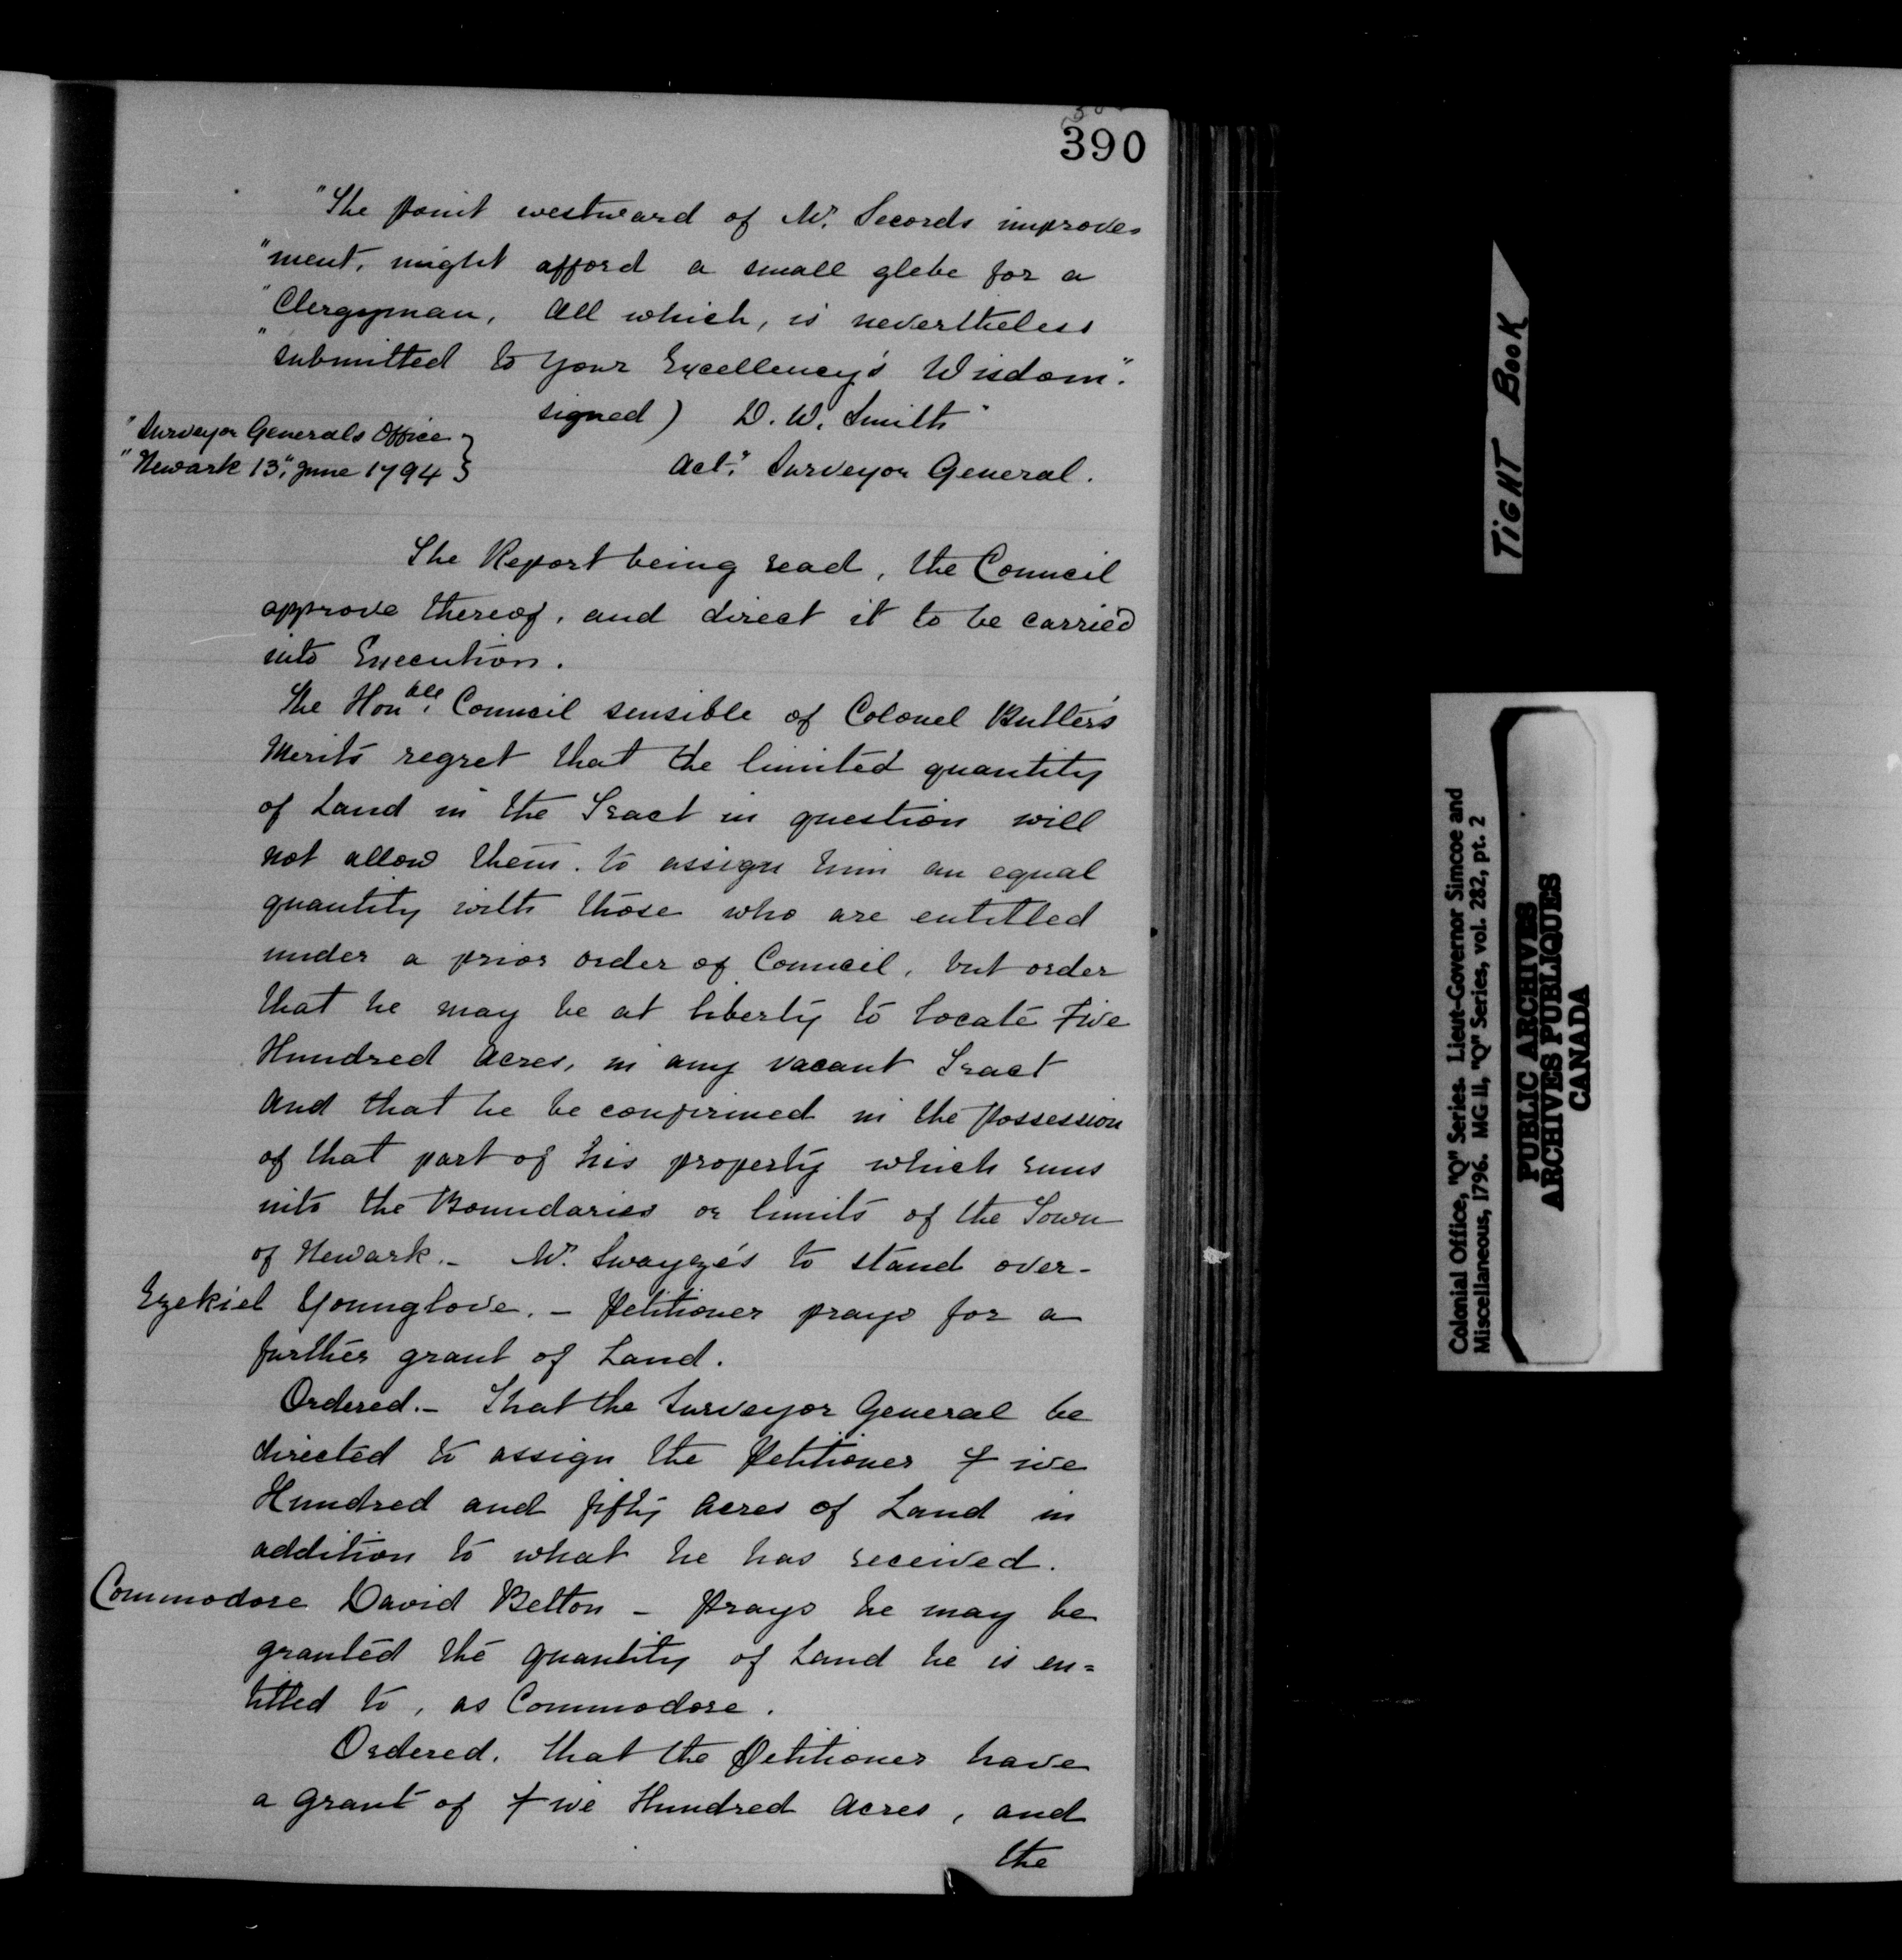 390
"The point westward of Mr. Secords improve-
"ment, might afford a small glebe for a
"Clergyman, All which, is nevertheless
"submitted to your Excellency's Wisdom".
signed) D. W. Smith"
"Surveyor Generals Office
"Newark 13th June 1794
Actg. Surveyor General.
The Report being read, the Council
approve thereof, and direct it to be carried
into Execution.
The Honble. Council sensible of Colonel Butler's
Merits regret that the limited quantity
of Land in the Tract in question will
not allow them to assign him an equal
quantity with those who are entitled
under a prior order of Council, but order
that he may be at liberty to locate Five
Hundred Acres, in any vacant Tract
And that he be confirmed in the possession
of that part of his property which runs
into the Boundaries or limits of the Town
of Newark.- Mr. Swayzé's to stand over-
Ezekiel Younglove. - Petitioner prays for a
further grant of Land.
Ordered.- That the Surveyor General be
directed to assign the Petitioner Five
Hundred and fifty Acres of Land in
addition to what he has received.
Commodore David Belton - Prays he may be
granted the quantity of Land he is en=
titled to, as Commodore.
Ordered. That the Petitioner have
a grant of Five Hundred Acres, and
the
TIGHT BOOK
Colonial Office, "Q" Series. Lieut-Governor Simcoe and
Miscellaneous, 1796. MG 11, "Q" Series, vol. 282, pt. 2
PUBLIC ARCHIVES
ARCHIVES PUBLIQUES
CANADA